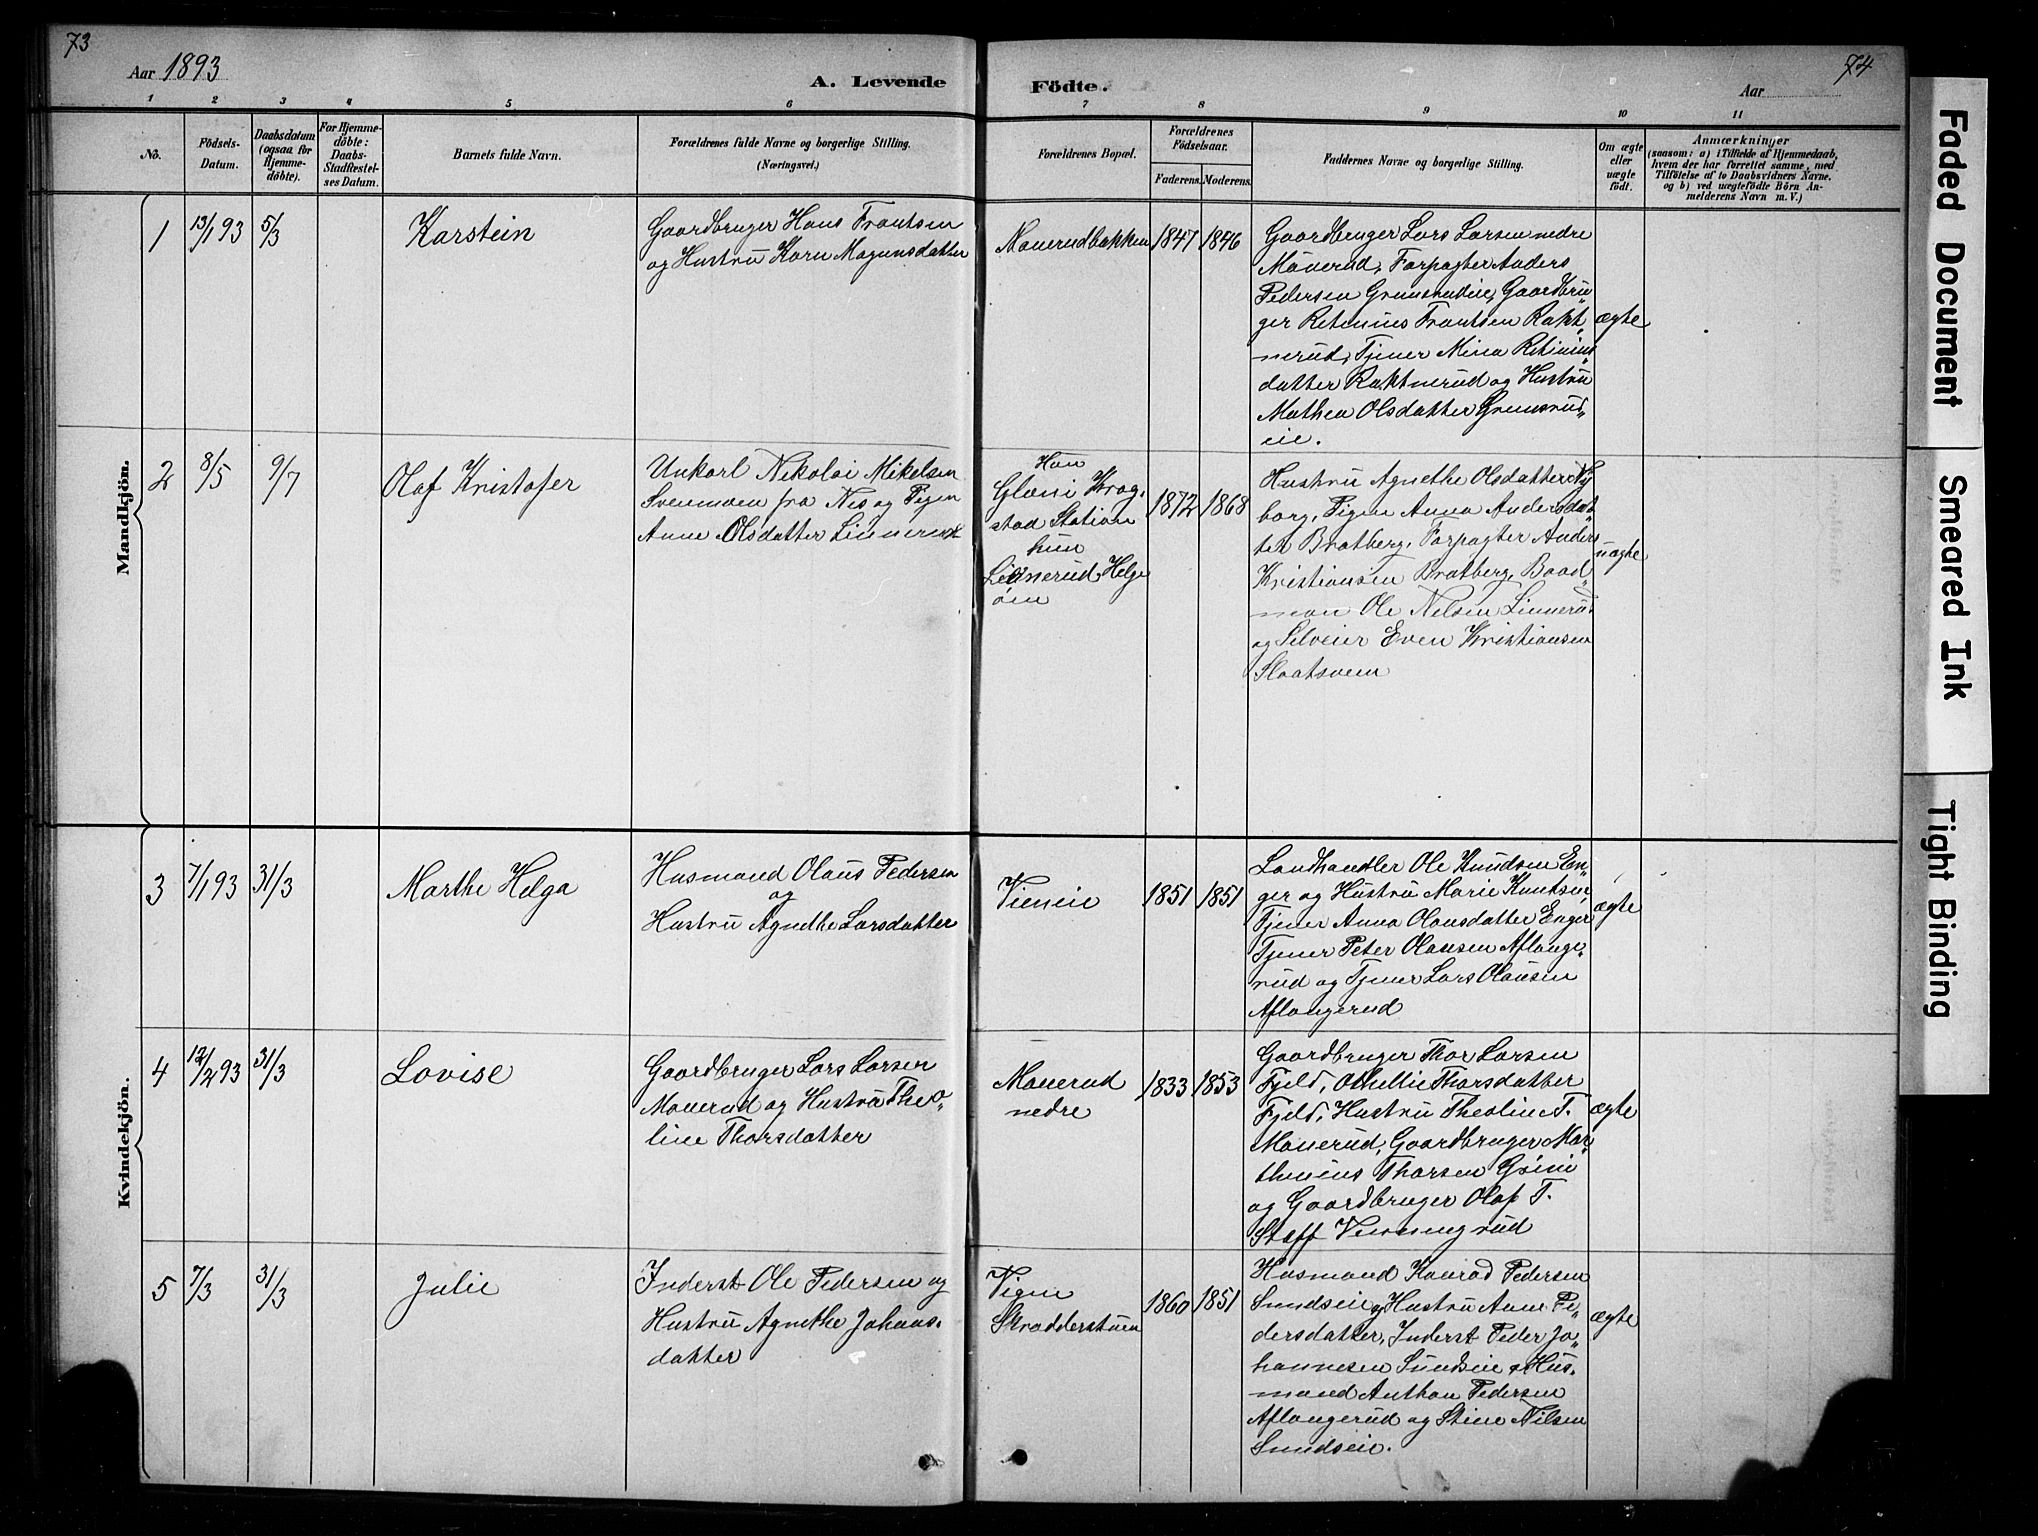 73
Aar 1893
A. Levende
Födte.
Aar
74
1 2 3 4 5 6 7 8 9 10 11
No.
Födsels-
Datum.
Daabsdatum
(ogsaa for
Hjemme-
döbte).
For Hjemme-
döbte:
Daabs-
Stadfæstel-
ses Datum.
Barnets fulde Navn.
Forældrenes fulde Navne og borgerlige Stilling.
(Næringsvei.)
Forældrenes Bopæl.
Forældrenes
Födselsaar.
Faderens. Moderens.
Faddernes Navne og borgerlige Stilling.
Om ægte
eller
uægte
født.
Anmærkninger
(saasom: a) i Tilfælde af Hjemmedaab,
hvem der har forrettet samme, med
Tilföielse af to Daabsvidners Navne.
og b) ved uægtefödte Börn An-
melderens Navn m. V.)
Mandkjön.
1
13/1 93
5/3
Karstein
Gaardbruger Hans Frantsen
og Hustru Karn Magnusdatter
Mauerudbakken
1847
1846
Gaardbruger Lars Larsen nedre
Mauerud, Forpagter Anders
Pedersen Grimsrudeie, Gaardbru
ger Retinius Frantsen Rakt
nerud, Tjener Mina Retinius
datter Raktnerud og Hustru
Mathea Olsdatter Grimsrud
eie.
ægte
2
8/5
9/7
Olaf Kristofer
Unkarl Nikolai Mikelsen
Svenmoen fra Nes og Pigen
Anne Olsdatter Linnerud
Han
Glæni Krog
stad Station
hun
Linnerud Helge
øen
1872
1868
Hustru Agnethe Olsdatter Ny
borg, Pigen Anna Andersdat
ter Bratberg, Forpagter Anders
Kristiansen Bratberg, Baad
man Ole Nilsen Linnerud
og Selveier Even Kristiansen
Slaatsveen
uægte
Kvindekjön.
3
7/1 93
31/3
Marthe Helga
Husmand Olaus Pedersen
og
Hustru Agnethe Larsdatter
Vieneie
1851
1851
Landhandler Ole Knudsen En-
ger og Hustru Marie Knutsen
Tjener Anna Olausdatter Enger
Tjener Peter Olausen Aflange
rud og Tjener Lars Olausen
Aflangerud
ægte
4
12/2 93
31/3
Lovise
Gaardbruger Lars Larsen
Mauerud og Hustru Theo
line Thorsdatter
Mauerud
nedre
1833
1853
Gaardbruger Thor Larsen
Fjeld, Othellie Thorsdatter
Fjeld, Hustru Theoline T.
Mauerud, Gaardbruger Mar
thinius Thorsen Grini
og Gaardbruger Olaf T.
Staff
ægte
5
7/3
31/3
Julie
Inderst Ole Pedersen og
Hustru Agnethe Johans-
datter
Vigen
Skradderstuen
1860
1851
Husmand Konrad Pedersen
Sundseie og Hustru Anne Pe
dersdatter, Inderst Peder Jo
hannesen Sundseie Hus-
mand Anthon Pedersen
Aflangerud og Stine Nilsen
Sundseie.
ægte
Faded Document
Smeared Ink
Tight Binding